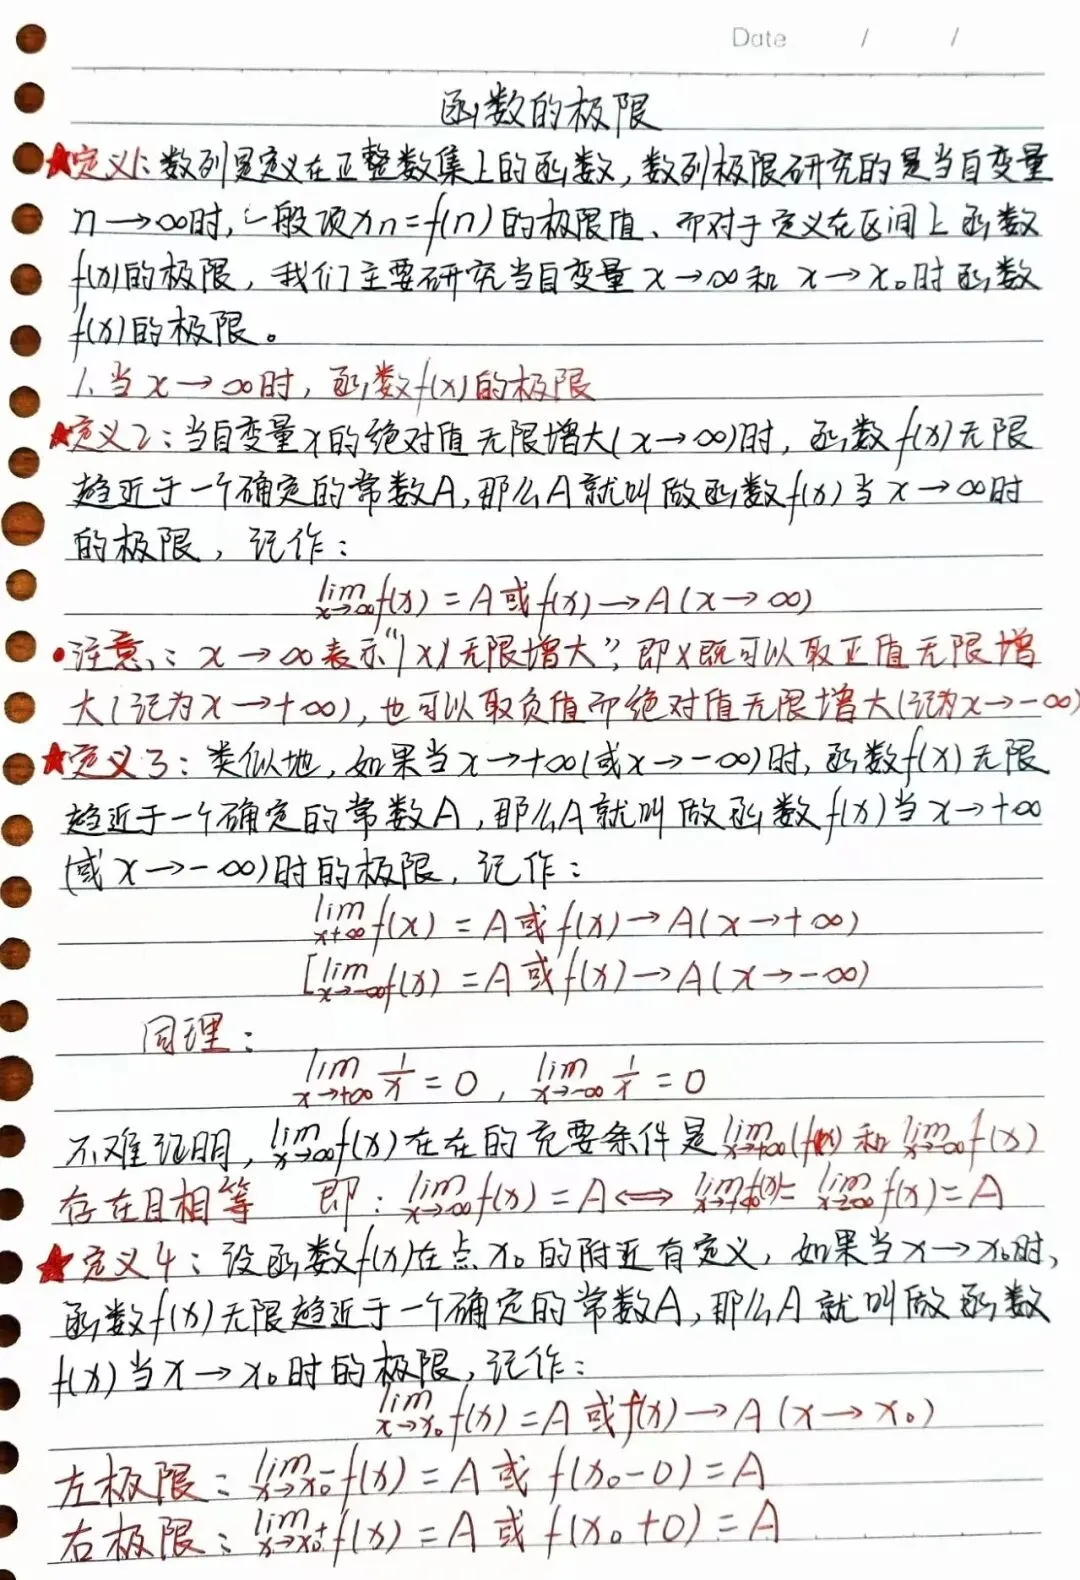 Date / /
函数的极限
★定义1:数列是定义在正整数集上的函数,数列极限研究的是当自变量
n→∞时,一般项xn=f(n)的极限值、而对于定义在区间上函数
f(x)的极限,我们主要研究当自变量x→∞和x→x₀时函数
f(x)的极限。
1.当x→∞时,函数f(x)的极限
★定义2:当自变量x的绝对值无限增大(x→∞)时,函数f(x)无限
趋近于一个确定的常数A,那么A就叫做函数f(x)当x→∞时
的极限,记作:
lim x→∞ f(x)=A或f(x)→A(x→∞)
•注意:x→∞表示“|x|无限增大”,即x既可以取正值无限增
大(记为x→+∞),也可以取负值而绝对值无限增大(记为x→-∞)
★定义3:类似地,如果当x→+∞(或x→-∞)时,函数f(x)无限
趋近于一个确定的常数A,那么A就叫做函数f(x)当x→+∞
(或x→-∞)时的极限,记作:
lim x+∞ f(x)=A或f(x)→A(x→+∞)
[lim x→-∞ f(x)=A或f(x)→A(x→-∞)
同理:
lim x→+∞ 1/x=0, lim x→-∞ 1/x=0
不难证明,lim x→∞ f(x)在在的充要条件是lim x→+∞(f(x)和lim x→-∞ f(x)
存在且相等 即:lim x→∞ f(x)=A⟺lim x→+∞ f(x)=lim x→-∞ f(x)=A
★定义4:设函数f(x)在点x₀的附近有定义,如果当x→x₀时,
函数f(x)无限趋近于一个确定的常数A,那么A就叫做函数
f(x)当x→x₀时的极限,记作:
lim x→x₀ f(x)=A或f(x)→A(x→x₀)
左极限:lim x→x₀⁻ f(x)=A或f(x₀-0)=A
右极限:lim x→x₀⁺ f(x)=A或f(x₀+0)=A